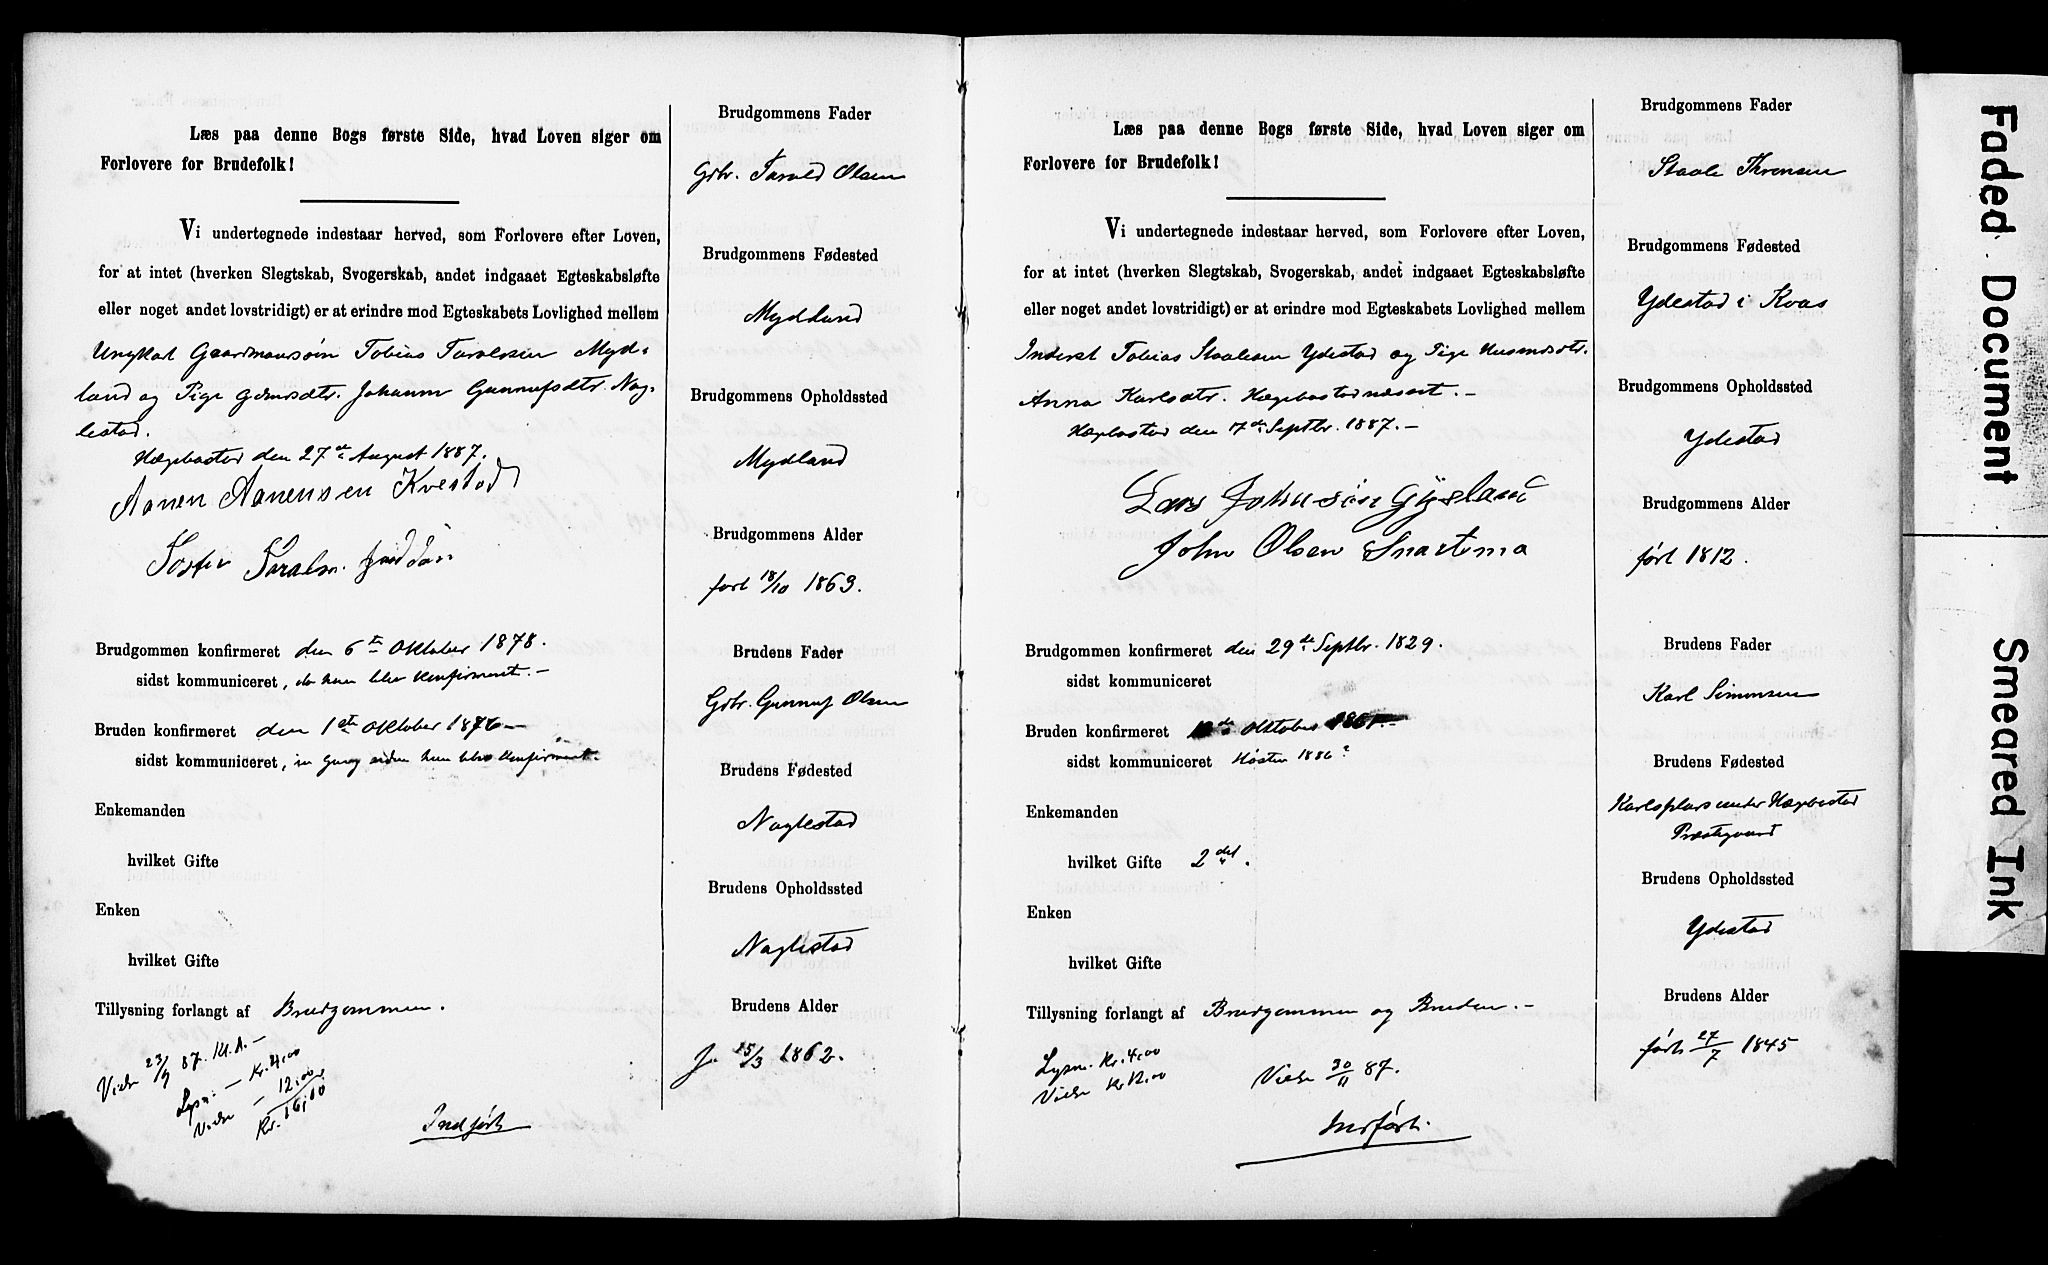 Læs paa denne Bogs første Side, hvad Loven siger om
Forlovere for Brudefolk!
Vi undertegnede indestaar herved, som Forlovere efter Loven,
for at intet (hverken Slegtskab, Svogerskab, andet indgaaet Egteskabsløfte
eller noget andet lovstridigt) er at erindre mod Egteskabets Lovlighed mellem
Ungkarl Gaardmandsøn Tobias Taraldsen Myd-
land og Pige Gdmdtr. Johanne Gunnufsdtr. Nag-
lestad.
Hægebostad den 27de August 1887.
Aanen Aanensen Kvestad
Taralsen
Brudgommen konfirmeret den 6te Oktober 1878.
sidst kommuniceret, da han blev konfirmeret. -
Bruden konfirmeret den 1ste Oktober 1876 -
sidst kommuniceret, en gang siden hun blev konfirmeret.
Enkemanden
hvilket Gifte
Enken
hvilket Gifte
Tillysning forlangt af Brudgommen.
Viede 23/9 87. Kl. A. -
Lysn. - Kr. 4,00
Vielse - 12,00
Kr. 16,00
Indført
Brudgommens Fader
Gbr. Tarald Olsen
Brudgommens Fødested
Mydland
Brudgommens Opholdssted
Mydland
Brudgommens Alder
født 18/10 1863.
Brudens Fader
Gbr. Gunnuf Olsen
Brudens Fødested
Naglestad
Brudens Opholdssted
Naglestad
Brudens Alder
f. 25/3 1862.
Læs paa denne Bogs første Side, hvad Loven siger om
Forlovere for Brudefolk!
Vi undertegnede indestaar herved, som Forlovere efter Loven,
for at intet (hverken Slegtskab, Svogerskab, andet indgaaet Egteskabsløfte
eller noget andet lovstridigt) er at erindre mod Egteskabets Lovlighed mellem
Inderst Tobias Staalesen Ydestad og Pige Husmdtr.
Anna Karlsdtr. Hægebostadnæset. -
Hægebostad den 17de Septbr. 1887. -
Lars Johnsøn Gysland
John Olsen Snartemo
Brudgommen konfirmeret den 29de Septbr. 1829.
sidst kommuniceret
Bruden konfirmeret Oktober 1861. -
sidst kommuniceret Høsten 1886?
Enkemanden
hvilket Gifte 2det.
Enken
hvilket Gifte
Tillysning forlangt af Brudgommen og Bruden. -
Lysn. Kr. 4,00
Vielse Kr 12,00
Viede 30/11 87.
Indført.
Brudgommens Fader
Staale Thronsen
Brudgommens Fødested
Ydestad i Kvas
Brudgommens Opholdssted
Ydestad
Brudgommens Alder
født 1812.
Brudens Fader
Karl Simonsen
Brudens Fødested
Karlsplads under Hægebostad
Præstegaard
Brudens Opholdssted
Ydestad
Brudens Alder
født 27/7 1845
Faded Document
Smeared Ink